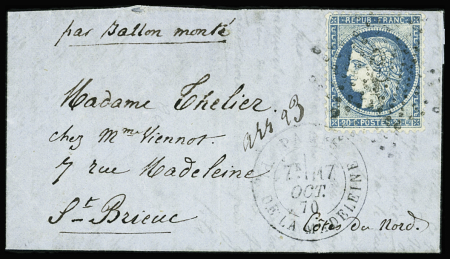 par Ballon monté
REPUB. FRANC.
20 C POSTES 20 C
Madame Thelier
arr 23
chez Mme Viennot
7 rue Madeleine
OCT.
70
DE LA MADELEINE
St. Brieuc
Côtes du Nord.